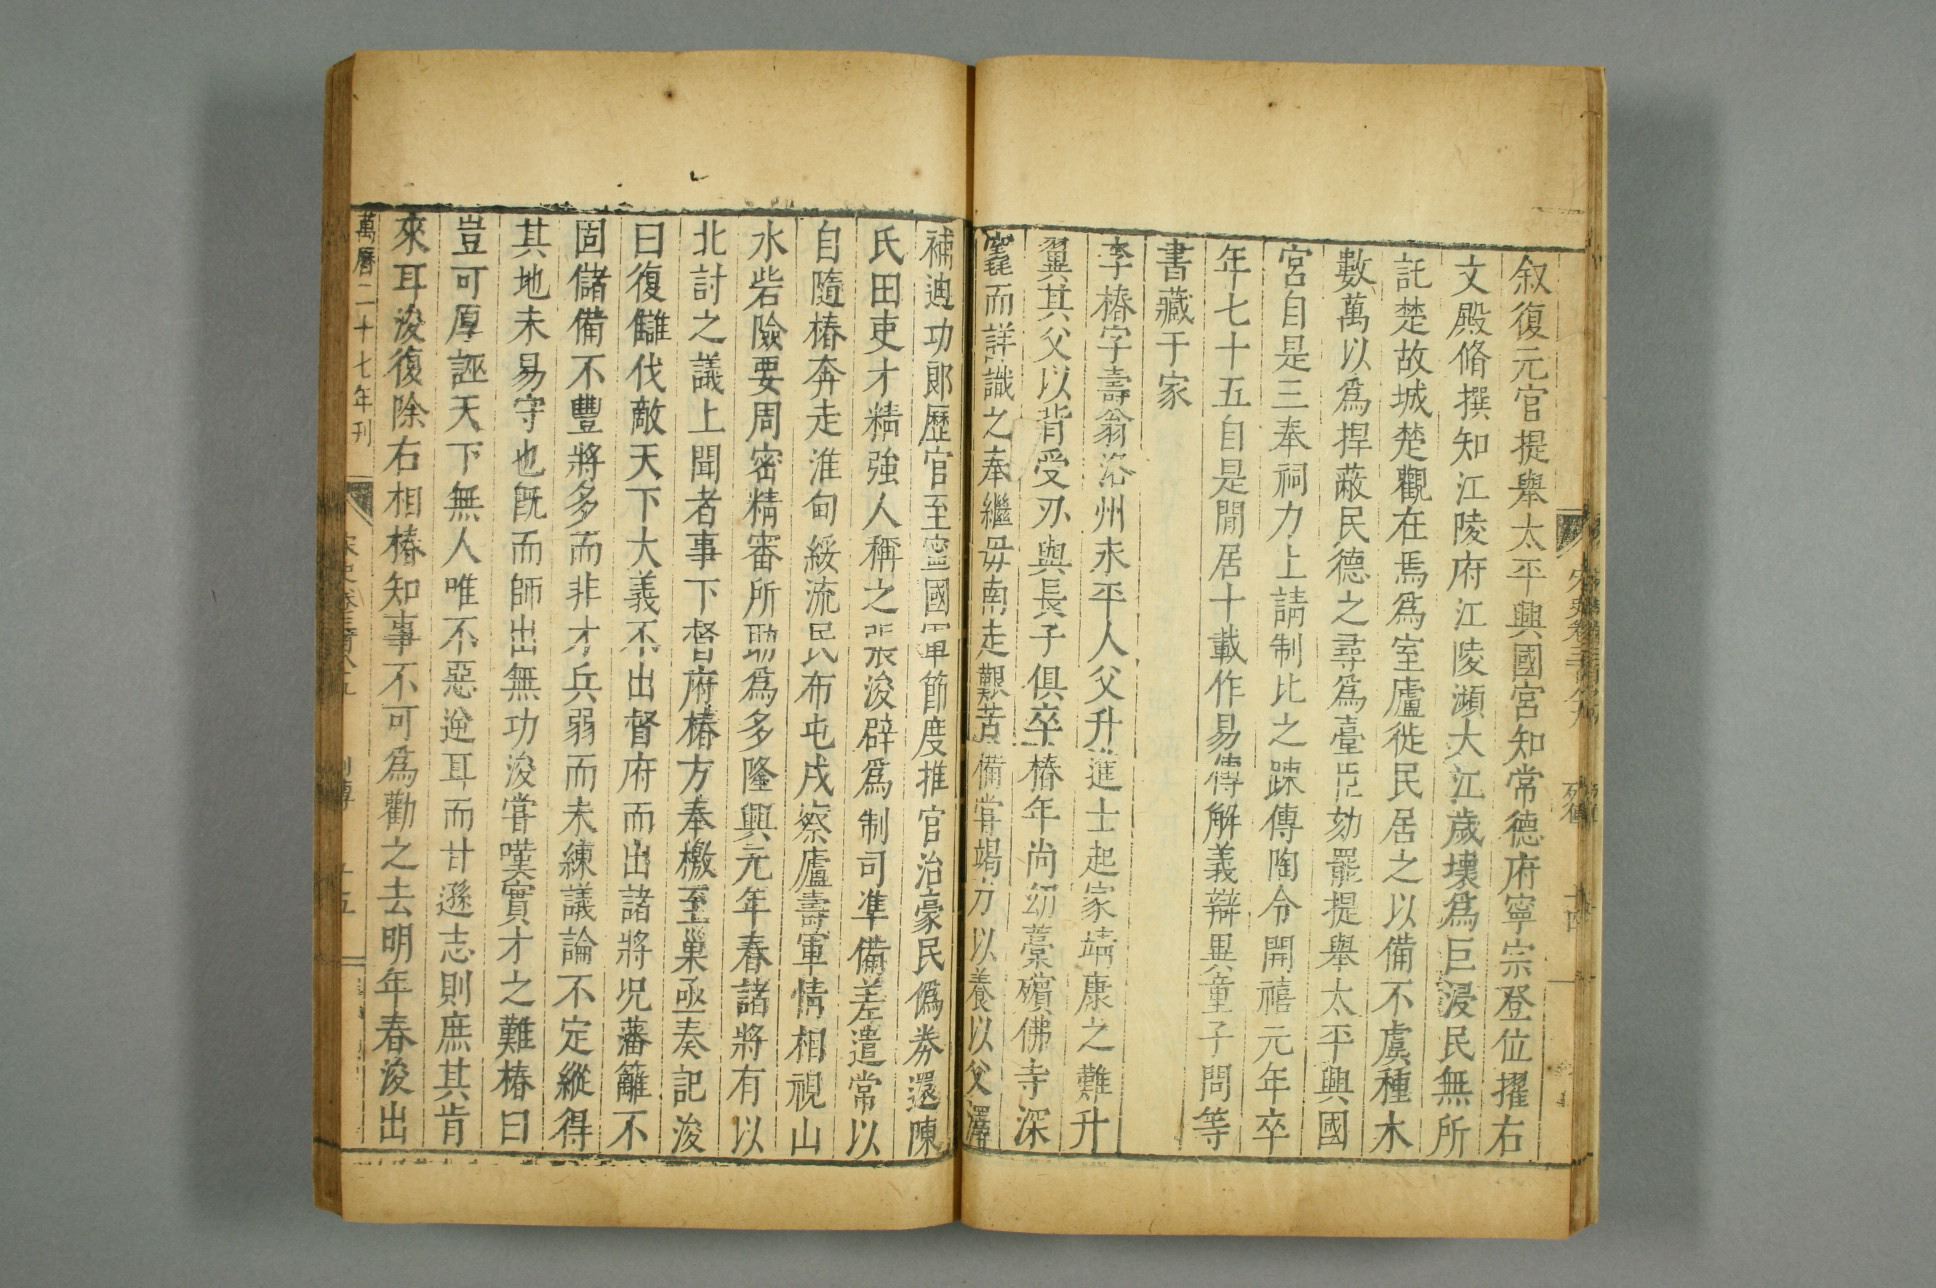 叙復元官提舉太平興國宮知常德府寧宗登位擢右
文殿脩撰知江陵府江陵瀕大江歲壞爲巨浸民無所
託楚故城楚觀在焉爲室廬徙民居之以備不虞種木
數萬以爲捍蔽民德之尋爲臺臣劾罷提舉太平興國
宮自是三奉祠力上請制比之踈傅陶令開禧元年卒
年七十五自是閒居十載作易傳解義辯異童子問等
書藏于家
李椿字壽翁洺州永平人父升進士起家靖康之難升
翼其父以背受刃與長子俱卒椿年尚幼藁殯佛寺深
窾而詳識之奉繼母南走艱苦備嘗竭力以養以父澤
補迪功郎歷官至寧國軍節度推官治豪民僞劵還陳
氏田吏才精強人稱之張浚辟爲制司準備差遣常以
自隨椿奔走淮甸綏流民布屯戍察廬壽軍情相視山
水砦險要周密精審所助爲多隆興元年春諸將有以
北討之議上聞者事下督府椿方奉檄至巢亟奏記浚
曰復讎伐敵天下大義不出督府而出諸將况藩籬不
固儲備不豐將多而非才兵弱而未練議論不定縱得
其地未易守也旣而師出無功浚嘗嘆實才之難椿曰
豈可厚誣天下無人唯不惡逆耳而甘遜志則庶其肯
來耳浚復除右相椿知事不可爲勸之去明年春浚出
萬曆二十七年刊
宋史卷三百八十九
列傳
十五